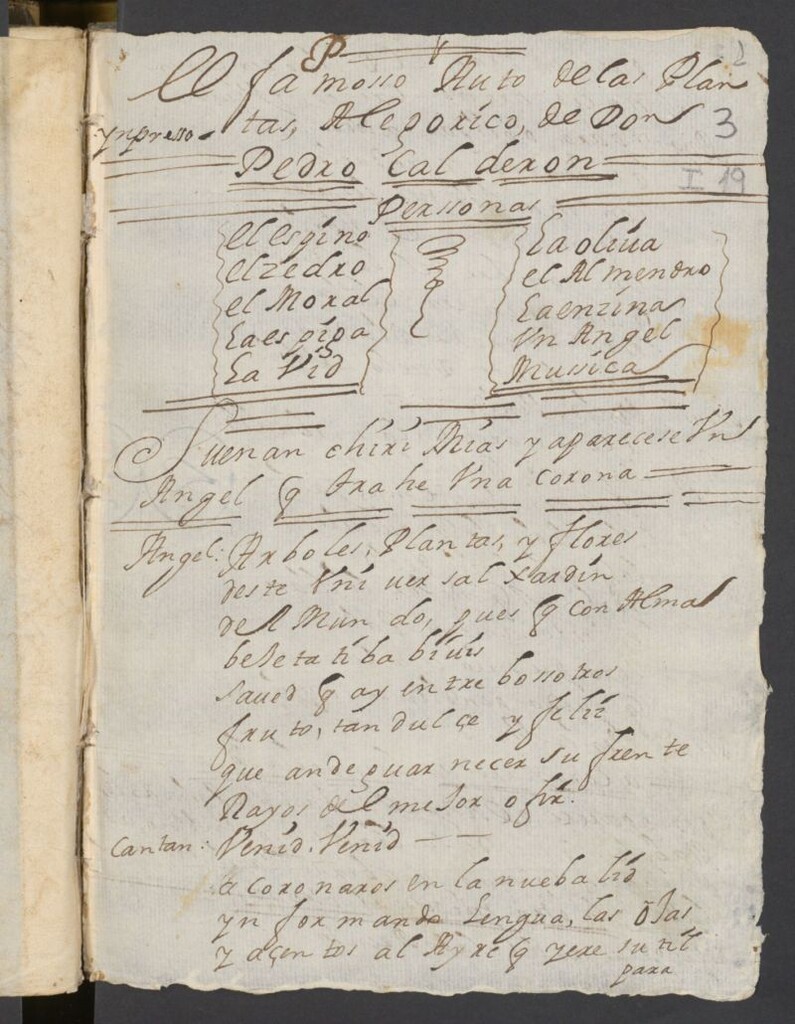 P
2
El famosso Auto de las Plan
tas, Alegorico, de Don
3
ynpresso
Pedro Calderon
I 19
Personas
el espino
el zedro
el Moral
La espiga
La Vid
La oliua
el Almendro
La enzina
Vn Angel
Mussica
Suenan chirimias y aparecese Vn
Angel q trahe Vna Corona
Angel: Arboles, Plantas, y flores
deste Vniuersal xardin
del Mundo, pues q con Alma
bejetatiba biuis
saued q ay entre bossotros
fruto, tan dulçe y feliz
que an de guarnecer su frente
Rayos del mejor ofir.
Cantan: Venid, Venid
a coronaros en la nueba lid
ynformando Lengua, las ojas
y açentos al Ayre q yere sutil
para